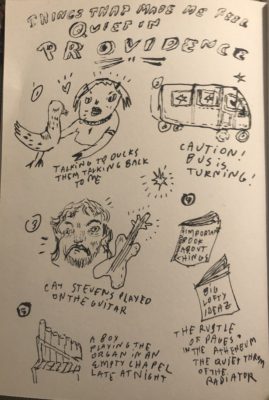 THINGS THAT MADE ME FEEL
QUIET IN
PROVIDENCE
1
TALKING TO DUCKS
THEM TALKING BACK
TO ME
2
CAUTION!
BUS IS
TURNING!
3
CAT STEVENS PLAYED
ON THE GUITAR
4
IMPORTANT
BOOK
ABOUT
THINGS
BIG
LOFTY
IDEAZ
THE RUSTLE
OF PAGES
IN THE ATHENEUM
THE QUIET THRUM
OF THE
RADIATOR
5
A BOY
PLAYING THE
ORGAN IN AN
EMPTY CHAPEL
LATE AT NIGHT